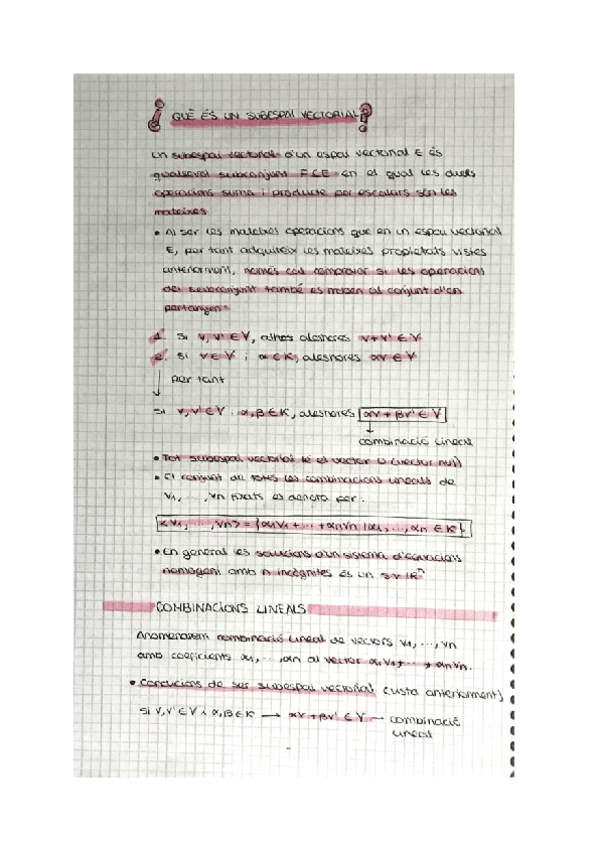 ¿QUÈ ÉS UN SUBESPAI VECTORIAL?
Un subespai vectorial d'un espai vectorial E és
qualsevol subconjunt F⊂E en el qual les dues
operacions suma i producte per escalars són les
mateixes
• Al ser les mateixes operacions que en un espai vectorial
E, per tant adquireix les mateixes propietats vistes
anteriorment, només cal comprovar si les operacions
del subconjunt també es troben al conjunt d'on
1. Si v, v' ∈ V, alhora aleshores v+v' ∈ V
2. Si v ∈ V i α ∈ K, aleshores αv ∈ V
per tant
Si v, v' ∈ V i α, β ∈ K, aleshores αv + βv' ∈ V
combinació lineal
• Tot subespai vectorial té el vector 0 (vector nul)
• El conjunt de totes les combinacions lineals de
v1, ..., vn fixats es denota per:
<v1, ..., vn> = {α1v1 + ... + αnvn | α1, ..., αn ∈ K}
• En general les solucions d'un sistema d'equacions
homogeni amb n incògnites és un s.v. ℝⁿ
COMBINACIONS LINEALS
Anomenarem combinació lineal de vectors v1, ..., vn
amb coeficients α1, ..., αn al vector α1v1 + ... + αnvn.
• Condicions de ser subespai vectorial (vista anteriorment)
Si v, v' ∈ V i α, β ∈ K → αv + βv' ∈ V → combinació
lineal